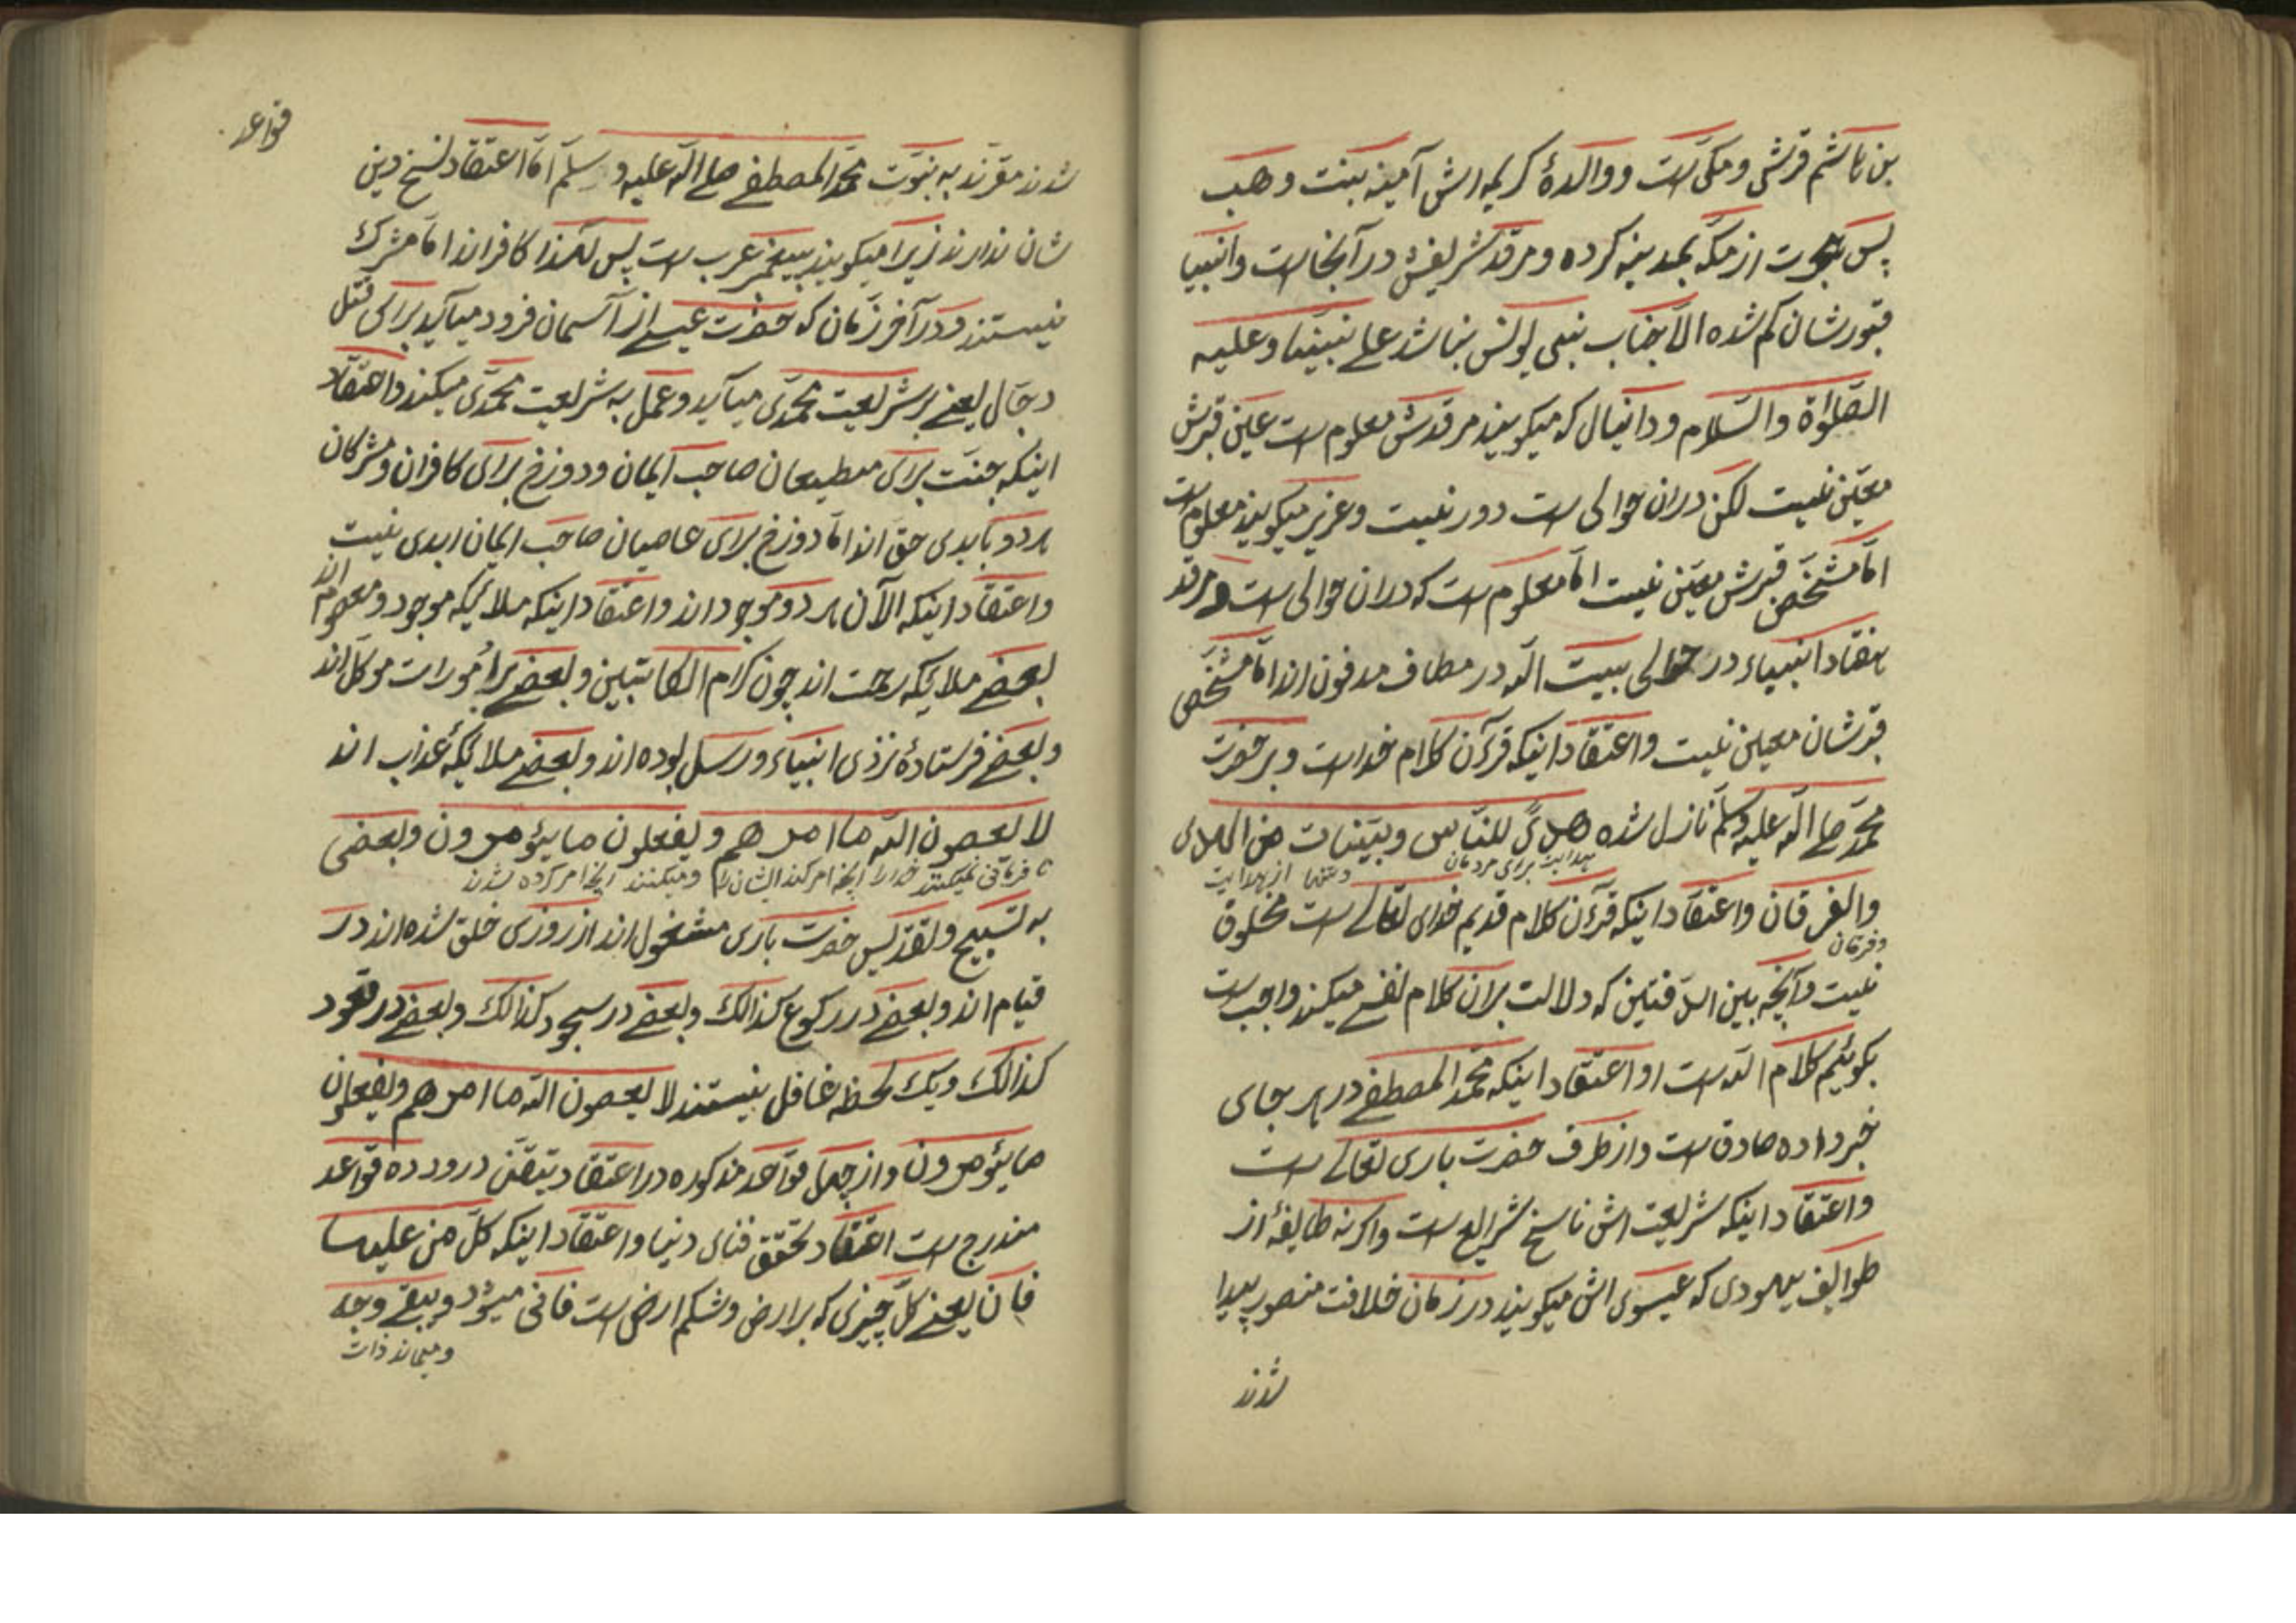 بن هاشم قرشی و مکی است و والدهٔ کریمه‌اش آمینه بنت وهب
پس هجرت از مکّه بمدینه کرده و مرقد شریفش در آنجا است و انبیا
قبورشان کم شده الّا جناب نبی یونس بناشد علی نبیّنا و علیه
الصّلوٰة والسّلام و دانیال که میکویند مرقدش معلوم است عین قبرش
معیّن نیست لکن دران حوالی است دور نیست و عزیر میکویند معلوم است
امّا مشخّص قبرش معیّن نیست امّا معلوم است که دران حوالی است و مرقد
هفتاد انبیاء در حوالی بیت اللّه در مطاف مدفون اند امّا مشخّص
قبرشان معین نیست و اعتقاد اینکه قرآن کلام خداست و بر حضرت
محمّد صلی اللّه علیه وسلّم نازل شده هدًی للنّاس وبیّنات من الهدی
هدایت برای مردمان از هدایت
والفرقان واعتقاد اینکه قرآن کلام قدیم خدای تعالی است مخلوق
و فرقان
نیست و آنچه بین الدّفتین که دلالت بران کلام نفسی میکند واجب است
بکوئیم کلام اللّه است او اعتقاد اینکه محمّد المصطفی در هر جای
خبر داده صادق است و از طرف حضرت باری تعالی است
واعتقاد اینکه شریعت اش ناسخ شرایع است واکرنه طایفهٔ از
طوایف یهودی که عیسوی اش میکویند در زمان خلافت منصور پیدا
شدند
قواعد
شدند مقرّند به نبوّت محمّد المصطفی صلی اللّه علیه و سلّم امّا اعتقاد نسخ دین
شان ندارند زیرا میکویند پیغمبر عرب است پس لهذا کافراند امّا مشرک
نیستند و در آخر زمان که حضرت عیسی از آسمان فرود میآید برای قتل
دجّال یعنی بر شریعت محمّدی میآید و عمل به شریعت محمّدی میکند واعتقاد
اینکه جنّت برای مطیعان صاحب ایمان و دوزخ برای کافران و مشرکان
هر دو بابدی حق اند امّا دوزخ برای عاصیان صاحب ایمان ابدی نیست
واعتقاد اینکه الآن هر دو موجود اند واعتقاد اینکه ملایکه موجود و معصوم اند
بعضی ملایکه رحمت اند چون کرام الکاتبین و بعضی براُمورات موکّل اند
و بعضی فرستادهٔ نزدی انبیاء و رسل بوده اند و بعضی ملایکهٔ عذاب اند
لا یعصون اللّه ما امرهم و یفعلون ما یؤمرون و بعضی
نافرمانی نمیکنند خدارا آنچه امر کند ایشان را و میکنند آنچه امر کرده شدند
به تسبیح و تقدیس حضرت باری مشغول اند از روزی خلق شده اند در
قیام اند و بعضی در رکوع کذالک و بعضی در سجود کذالک و بعضی در قعود
کذالک و یک لحظه غافل نیستند لا یعصون اللّه ما امرهم و یفعلون
ما یؤمرون و از جمله قواعد مذکوره در اعتقاد یتقّن درود ده قواعد
مندرج است اعتقاد تحقق فنای دنیا واعتقاد اینکه کلّ من علیها
فان یعنی کلّ چیزی که بر ارض و شکم ارض است فانی میشود و یبقی وجه
و میماند ذات